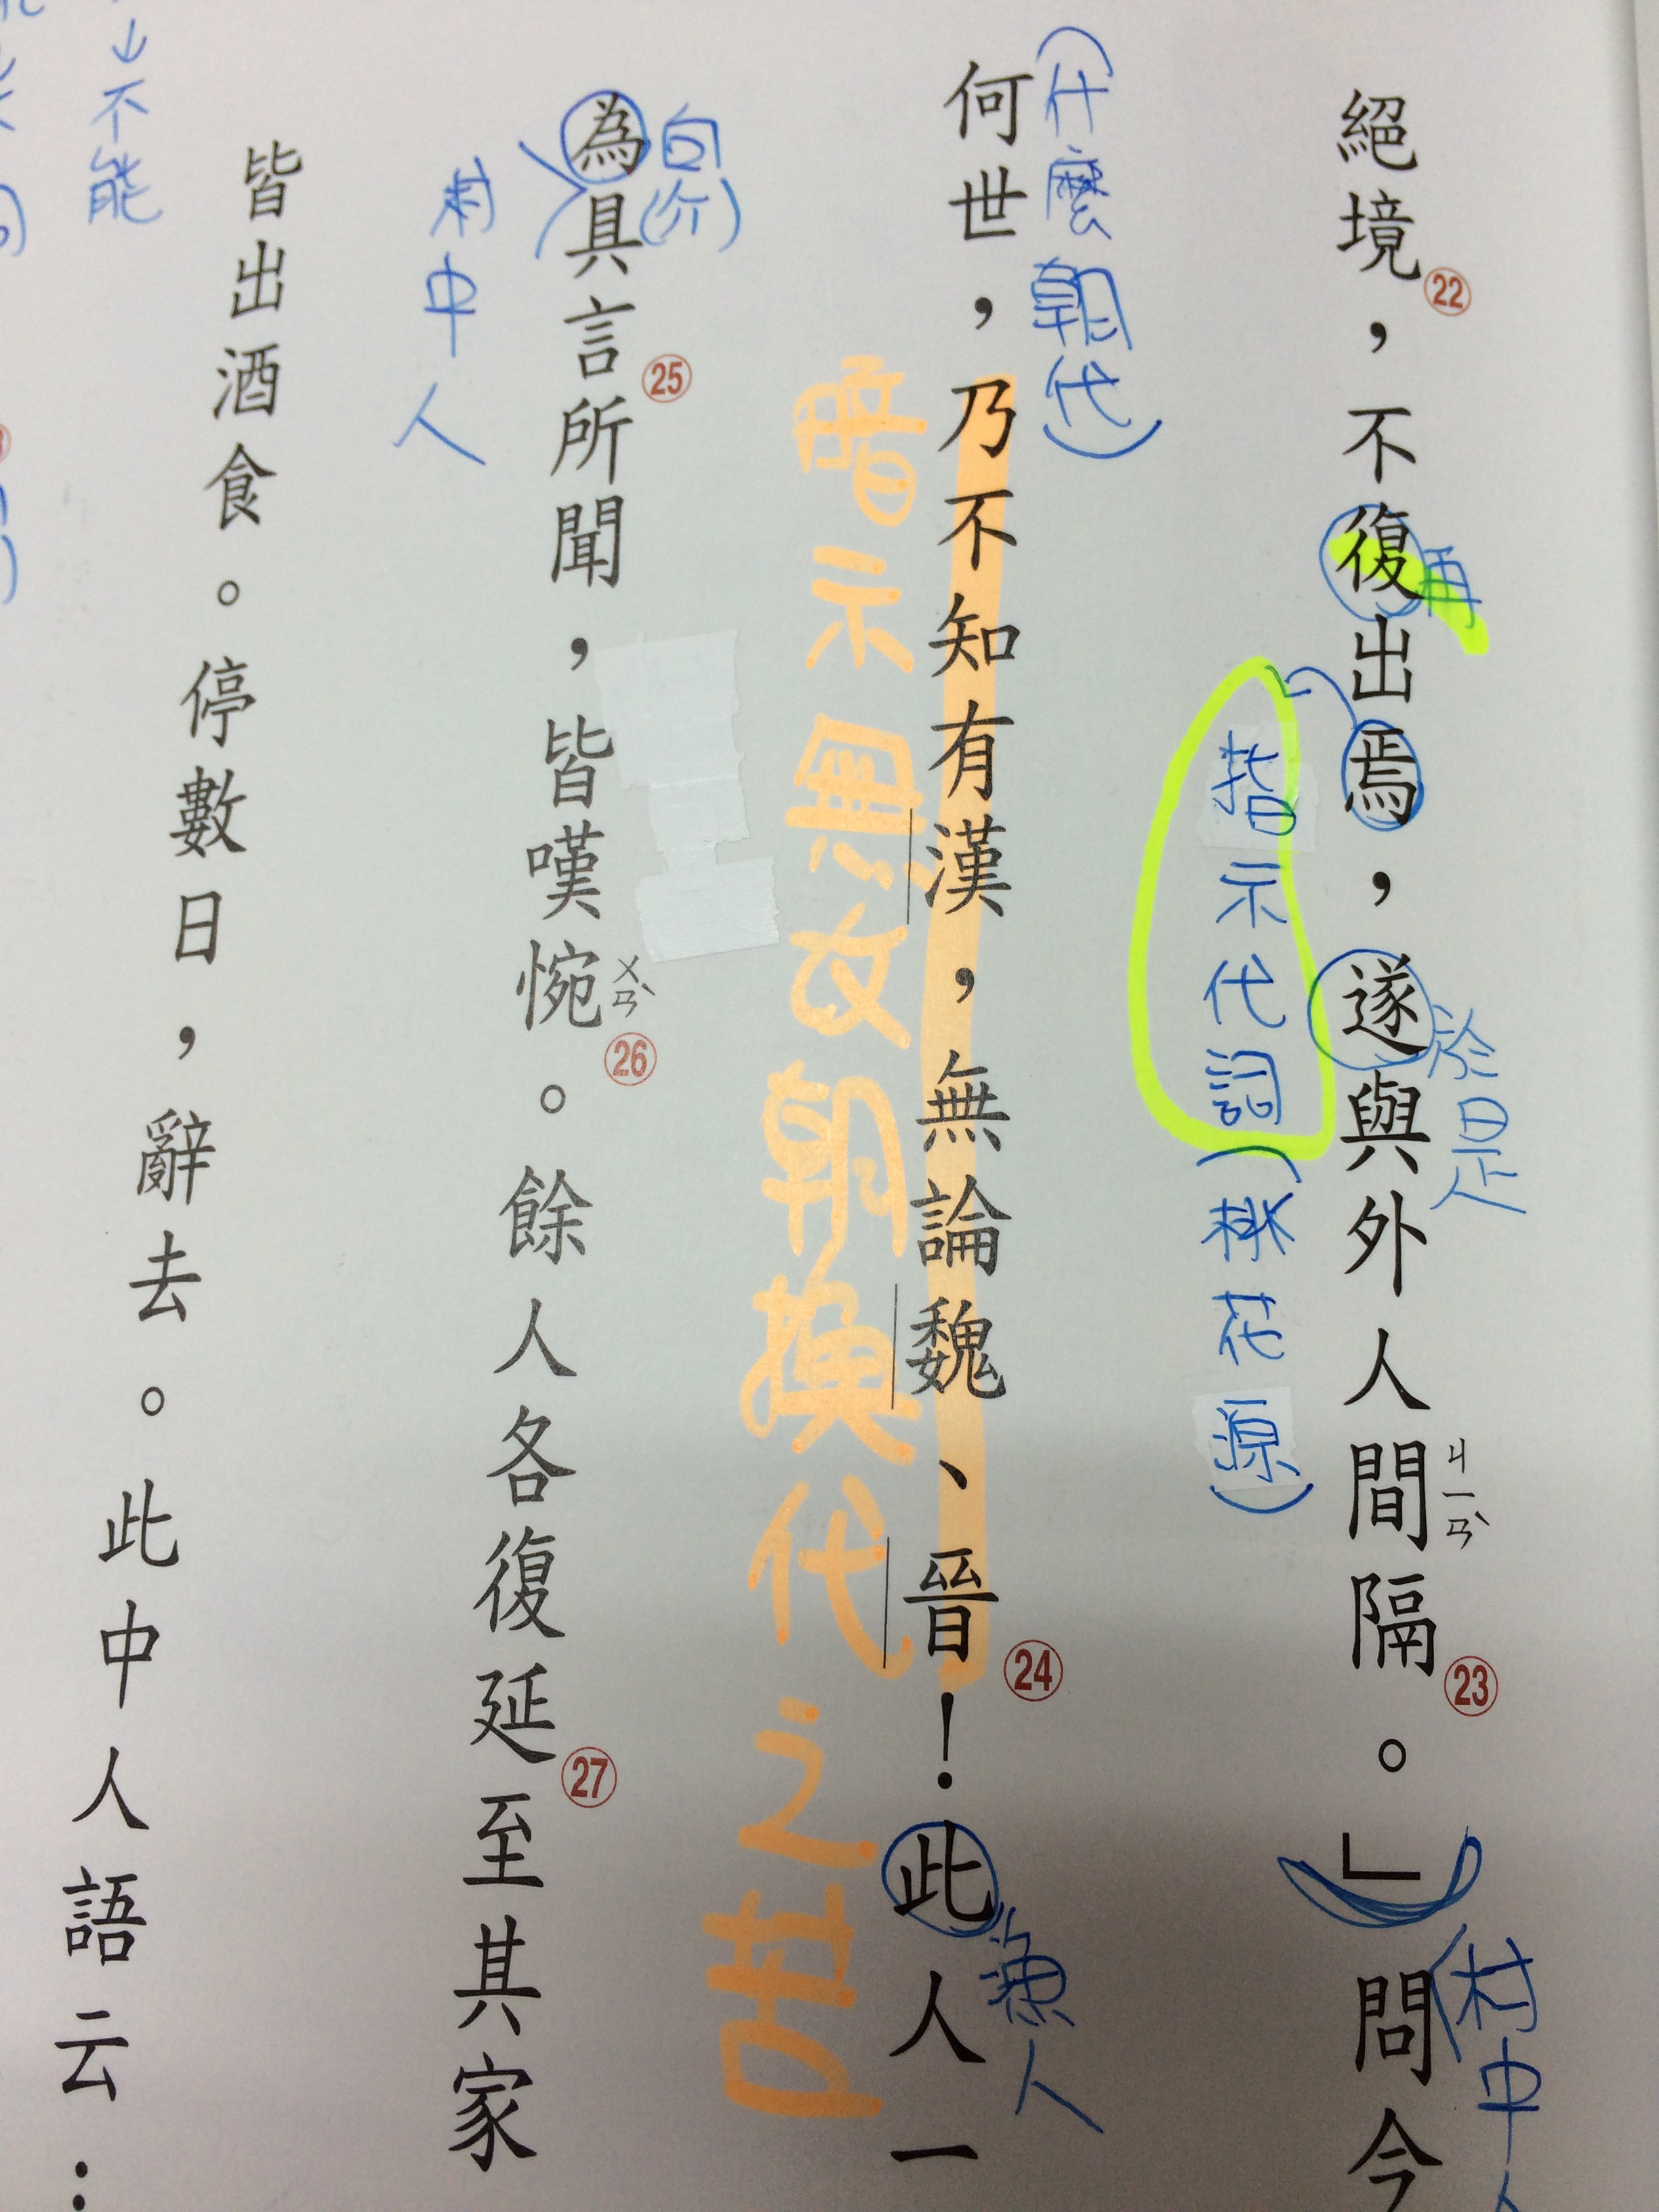 絕境㉒，不復出焉，遂與外人間隔㉓。」問今
ㄐㄧㄢˋ
再
於是
(村中人
指示代詞(桃花源)
何世，乃不知有漢，無論魏、晉㉔！此人一
(什麼朝代)
漁人
暗示無改朝換代之苦
為具言㉕所聞，皆嘆惋㉖。餘人各復延㉗至其家
ㄨㄢˋ
向(介)
村中人
皆出酒食。停數日，辭去。此中人語云：
↓不能